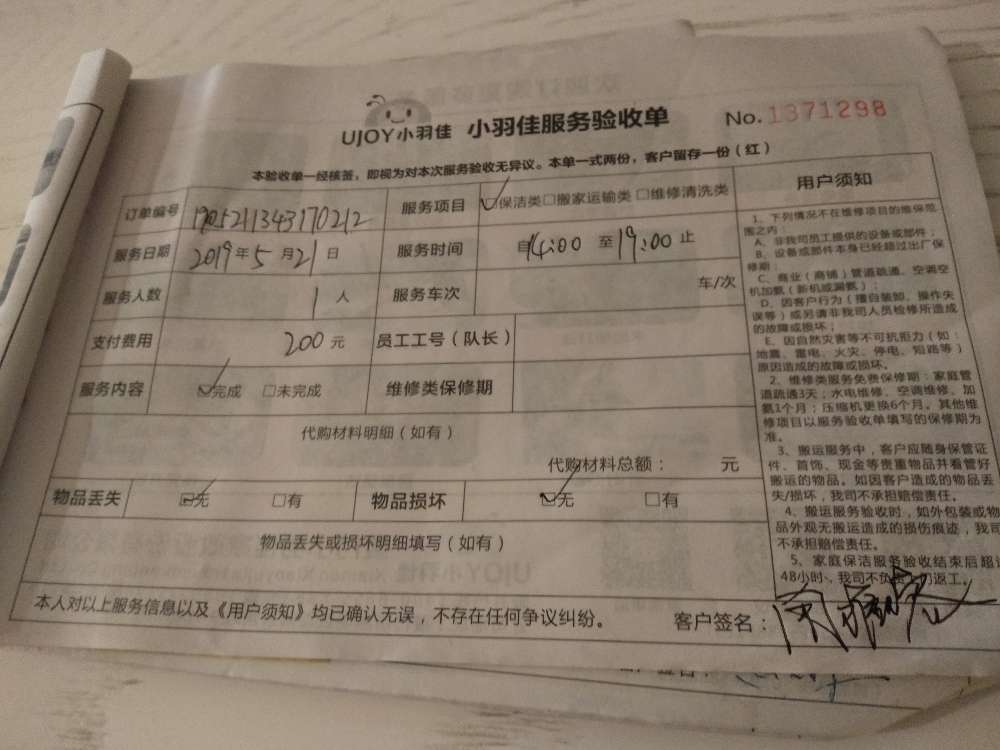 UJOY小羽佳 小羽佳服务验收单 No. 1371298
本验收单一经核签，即视为对本次服务验收无异议。本单一式两份，客户留存一份（红）
订单编号 1905211343170212 服务项目 ☑保洁类□搬家运输类□维修清洗类
服务日期 2019年5月21日 服务时间 自14:00 至19:00止
服务人数 1人 服务车次 车/次
支付费用 200元 员工工号（队长）
服务内容 ☑完成 □未完成 维修类保修期
代购材料明细（如有）
代购材料总额： 元
物品丢失 ☑无 □有 物品损坏 ☑无 □有
物品丢失或损坏明细填写（如有）
本人对以上服务信息以及《用户须知》均已确认无误，不存在任何争议纠纷。 客户签名：
用户须知
1、下列情况不在维修项目的维保范
围之内：
A、非我司员工提供的设备或部件；
B、设备或部件本身已经超过出厂保
修期；
C、商业（商铺）管道疏通、空调空
机加氨（新机或漏氨）；
D、因客户行为（擅自装卸、操作失
误等）或另请非我司人员检修所造成
的故障或损坏；
E、因自然灾害等不可抗拒力（如：
地震、雷电、火灾、停电、短路等）
原因造成的故障或损坏。
2、维修类服务免费保修期：家庭管
道疏通3天；水电维修、空调维修、加
氨1个月；压缩机更换6个月。其他维
修项目以服务验收单填写的保修期为
准。
3、搬运服务中，客户应随身保管证
件、首饰、现金等贵重物品并看管好
搬运的物品。如因客户造成的物品丢
失/损坏，我司不承担赔偿责任。
4、搬运服务验收时，如外包装或物
品外观无搬运造成的损伤痕迹，我司
不承担赔偿责任。
5、家庭保洁服务验收结束后超过
48小时，我司不负责 返工。